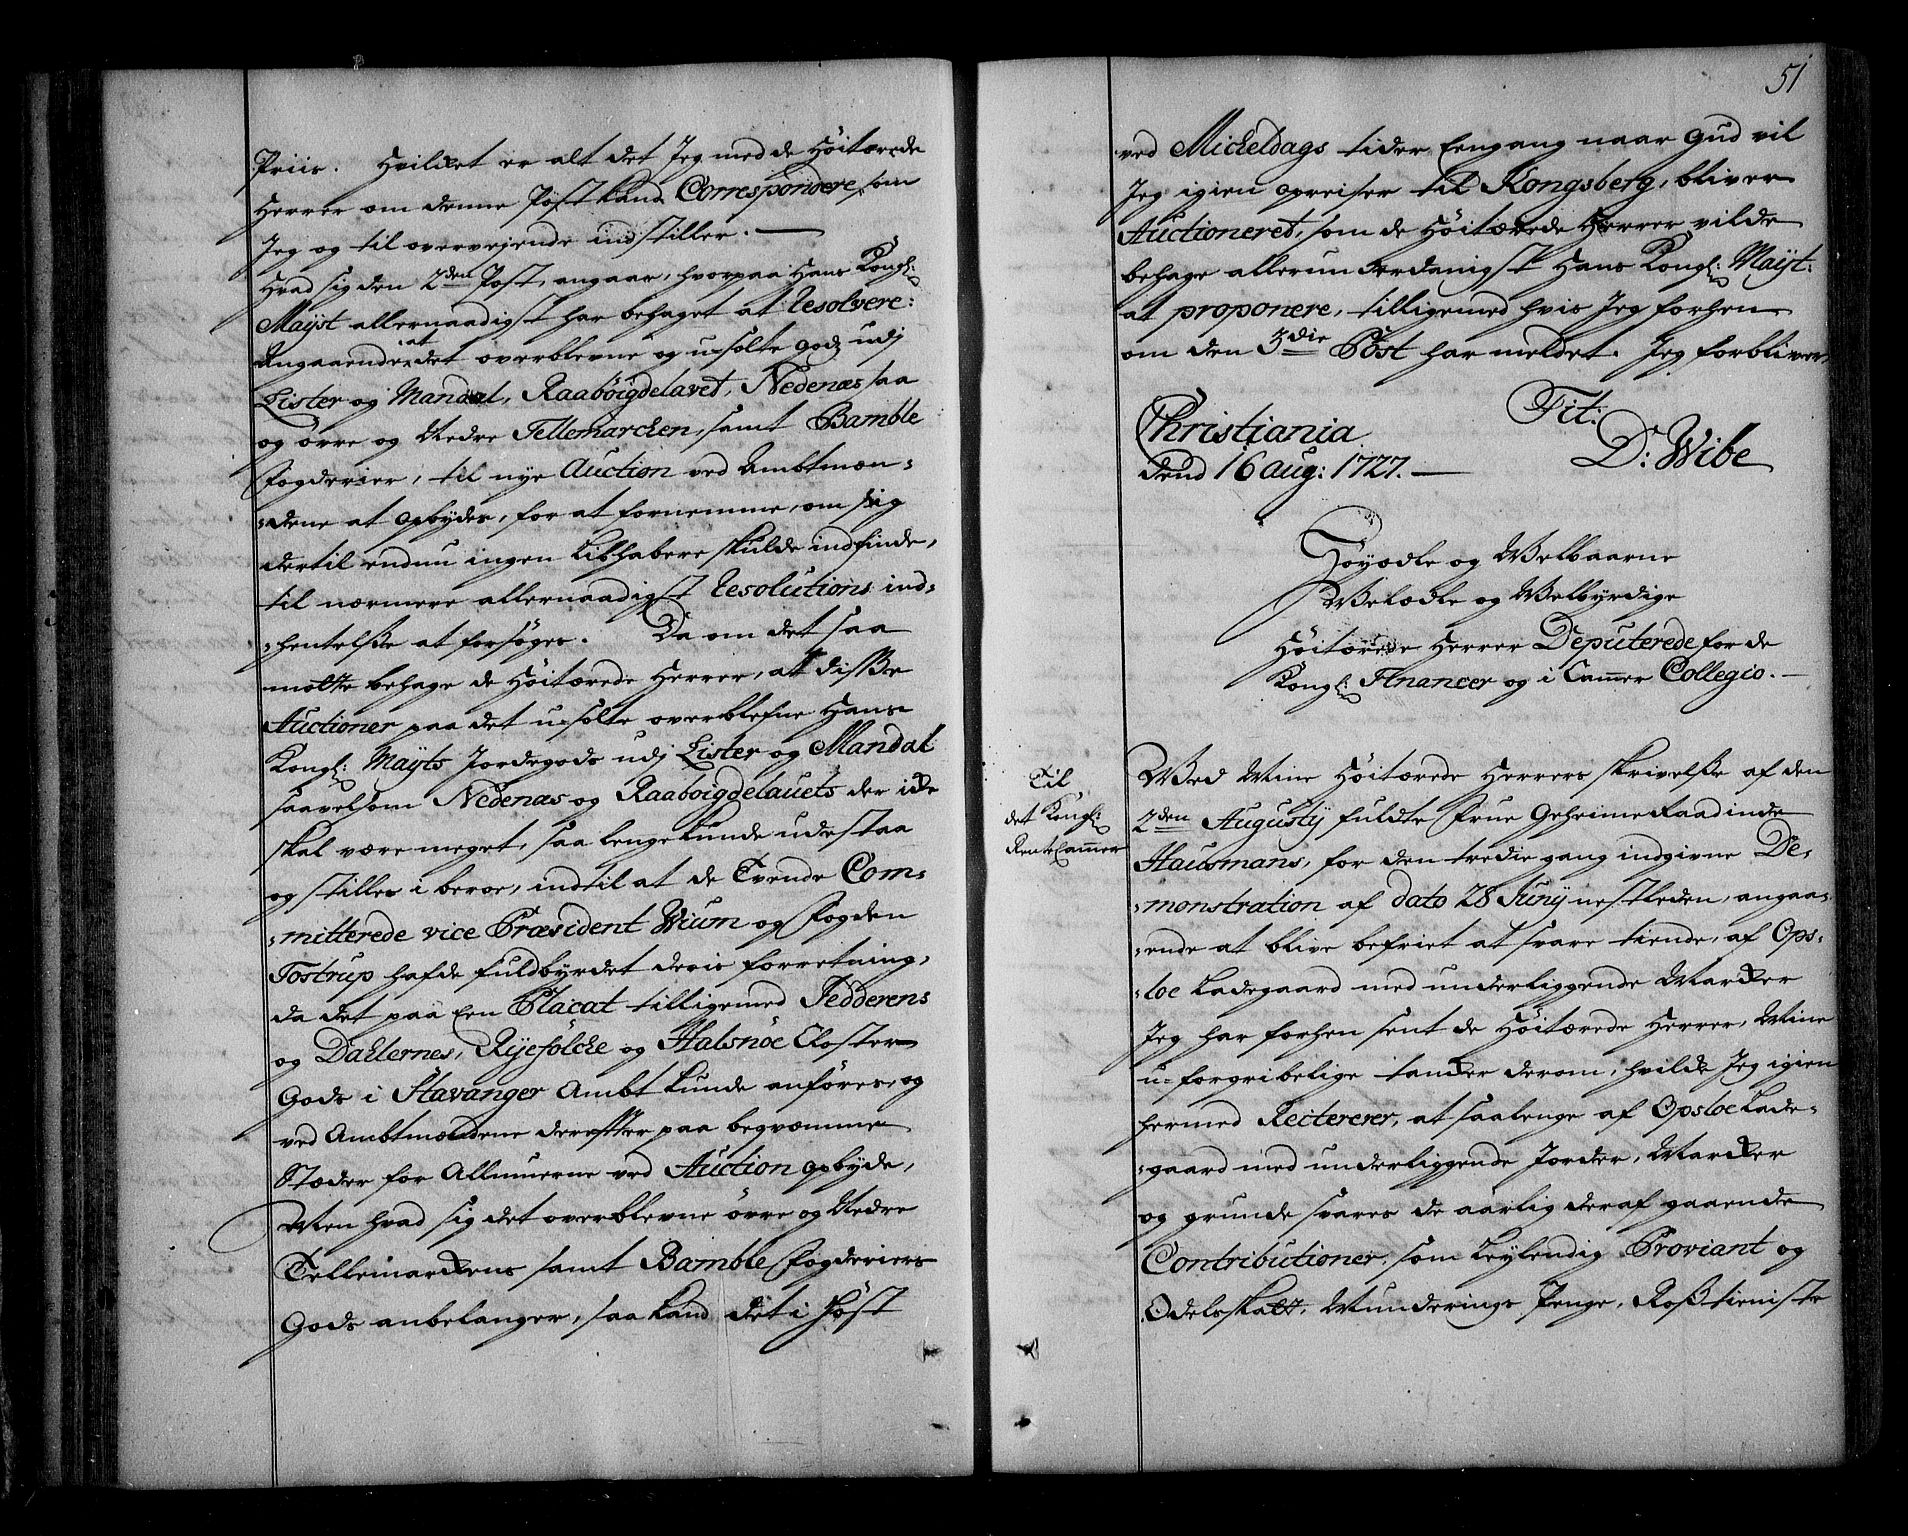 Priis. Hvilket er alt det Jeg med de Höitærede
Herrer om denne Post kand Correspondere, som
Jeg og til overvejende indstiller. —
Hvad sig den 2den Post, angaar, hvorpaa Hans Kongl:
Mayst allernaadigst har behaget at Resolvere:
Angaaende at det overblevne og usolte gods udj
Lister og Mandal, Raabøigdelavet, Nedenæs saa
og övre og Nedre Tellemarchen, samt Bamble
Fogderier, til nye Auction ved Ambtmæn-
-dene at opbydes, for at fornemme, om sig
dertil endnu ingen Libhabere skulde indfinde,
til nærmere allernaadigst Resolutions ind-
-hentelse at forsøges. Da om det saa
motte behage de Höitærede Herrer, at disse
Auctioner paa det usolte overblefne Hans
Kongl: Mayts Jordegods udj Lister og Mandal
saavelsom Nedenæs og Raaboigdelauets der icke
skal være meget, saa lenge kunde udestaa
og stilles i beroe, indtil at de Tvende Com-
-mitterede vice Præsident Wium og Fogden
Tostrup hafde fuldbyrdet deris forretning,
da det paa een Placat tilligemed Jedderens
og Dahlernes, Ryefölche og Halsnöe Closters
Gods i Stavanger Ambt kunde anføres, og
ved Ambtmændene derefter paa beqvemme
Stæder for Almuerne ved Auction opbyde,
Men hvad sig det overblevne övre og Nedre
Tellemarckens samt Bamble Fogderiers
Gods anbelanger, saa kand det i Höst
51
ved Micheldags tider Eengang naar Gud vil
Jeg igien opreiser til Kongsberg, bliver
Auctioneret, som de Höitærede Herrer vilde
behage allerunderdanigst Hans Kongl: Mayt:
at proponere, tilligemed hvis Jeg forhen
om den 3die Post har meldet. Jeg forbliver
Tit:
Christiania
dend 16 aug: 1727. —
D: Wibe
Høyædle og Welbaarne
Welædle og Welbyrdige
Höitærede Herrer Deputerede for de
Kongl: Financer og i Cammer Collegio. —
Til
det Kongl:
Rente Cammer
Med Mine Höitærede Herrers skrivelse af den
2den Augusty fuldte Frue Geheime Raadinde
Hausmans, for den tredie gang indgivne De-
-monstration af dato 28 Juny nestleden, angaa-
-ende at blive befriet at svare tiende, af Ops-
-loe Ladegaard med underliggende Marcker
Jeg har forhen sent de Höitærede Herrer, Mine
u-forgribelige tancker derom, hvilcke Jeg igien
hermed Reitererer, at saalenge af Opsloe Lade-
-gaard med underliggende Jorder, Marcker
og grunde svares de aarlig deraf gaaende
Contributioner, som Leylending Proviant og
Odelsskatt, Munderings Penge, Rosstieniste